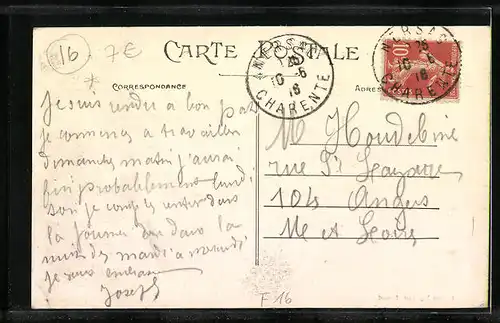 16
7€
CARTE POSTALE
CORRESPONDANCE
10-6
16
CHARENTE
10
10-6
16
CHARENTE
Je suis rendu a bon pas
je commence a travailler
dimanche matin j'aurai
fini probablement lundi
soir je compte
la journée dans la
mardi a mercredi
je vous embrasse
Joseph
M Houdebine
rue St Lazare
104 Angers
M et Loire
F 16